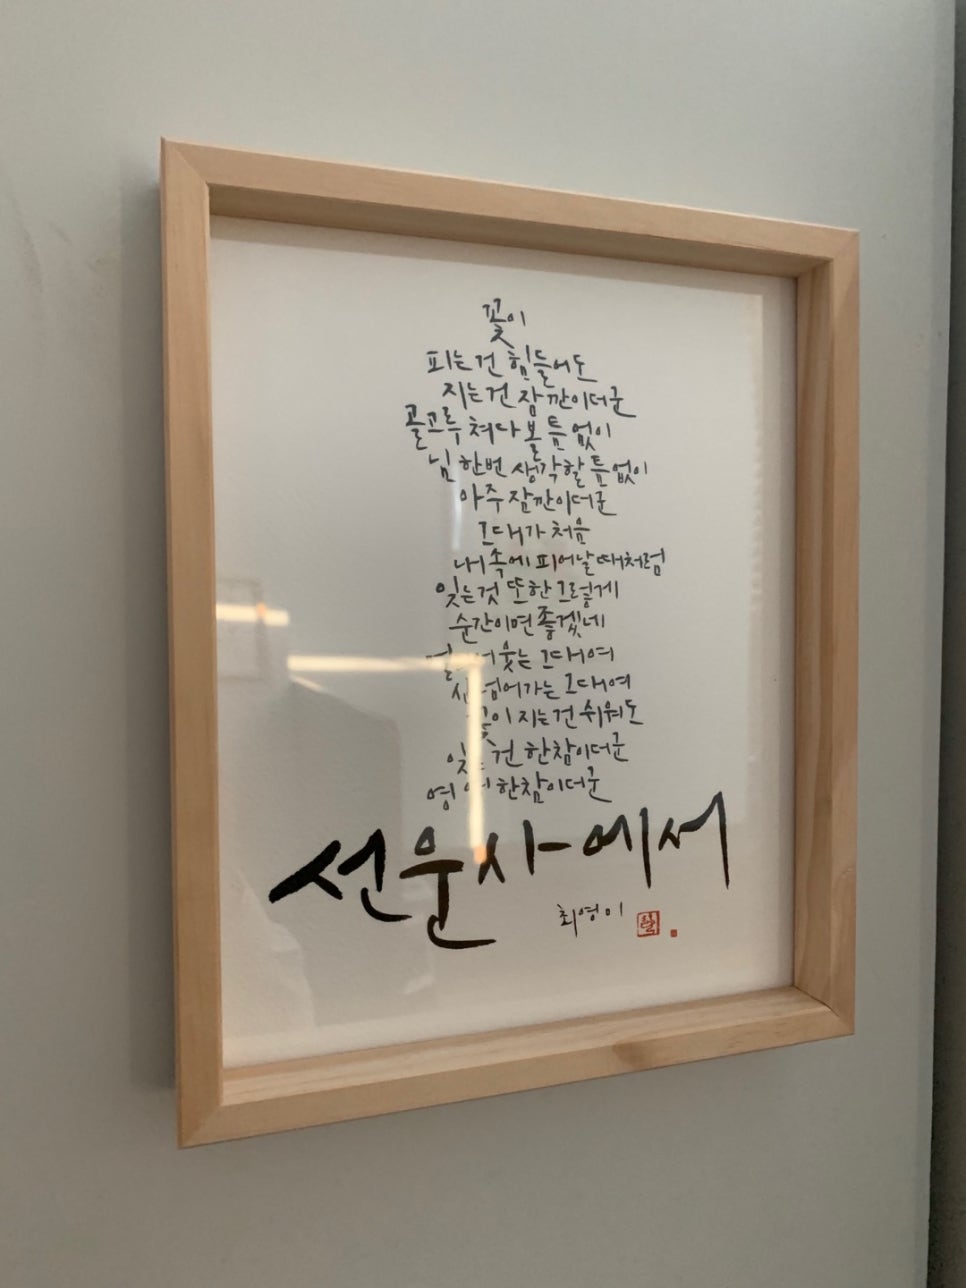 꽃이
피는건 힘들어도
지는건 잠깐이더군
골고루 쳐다 볼 틈 없이
님 한번 생각할 틈 없이
아주 잠깐이더군
그대가 처음
내 속에 피어날 때처럼
잊는것 또한 그렇게
순간이면 좋겠네
웃는 그대여
넘어가는 그대여
꽃이 지는건 쉬워도
잊는 건 한참이더군
영영 한참이더군
선운사에서
최영미